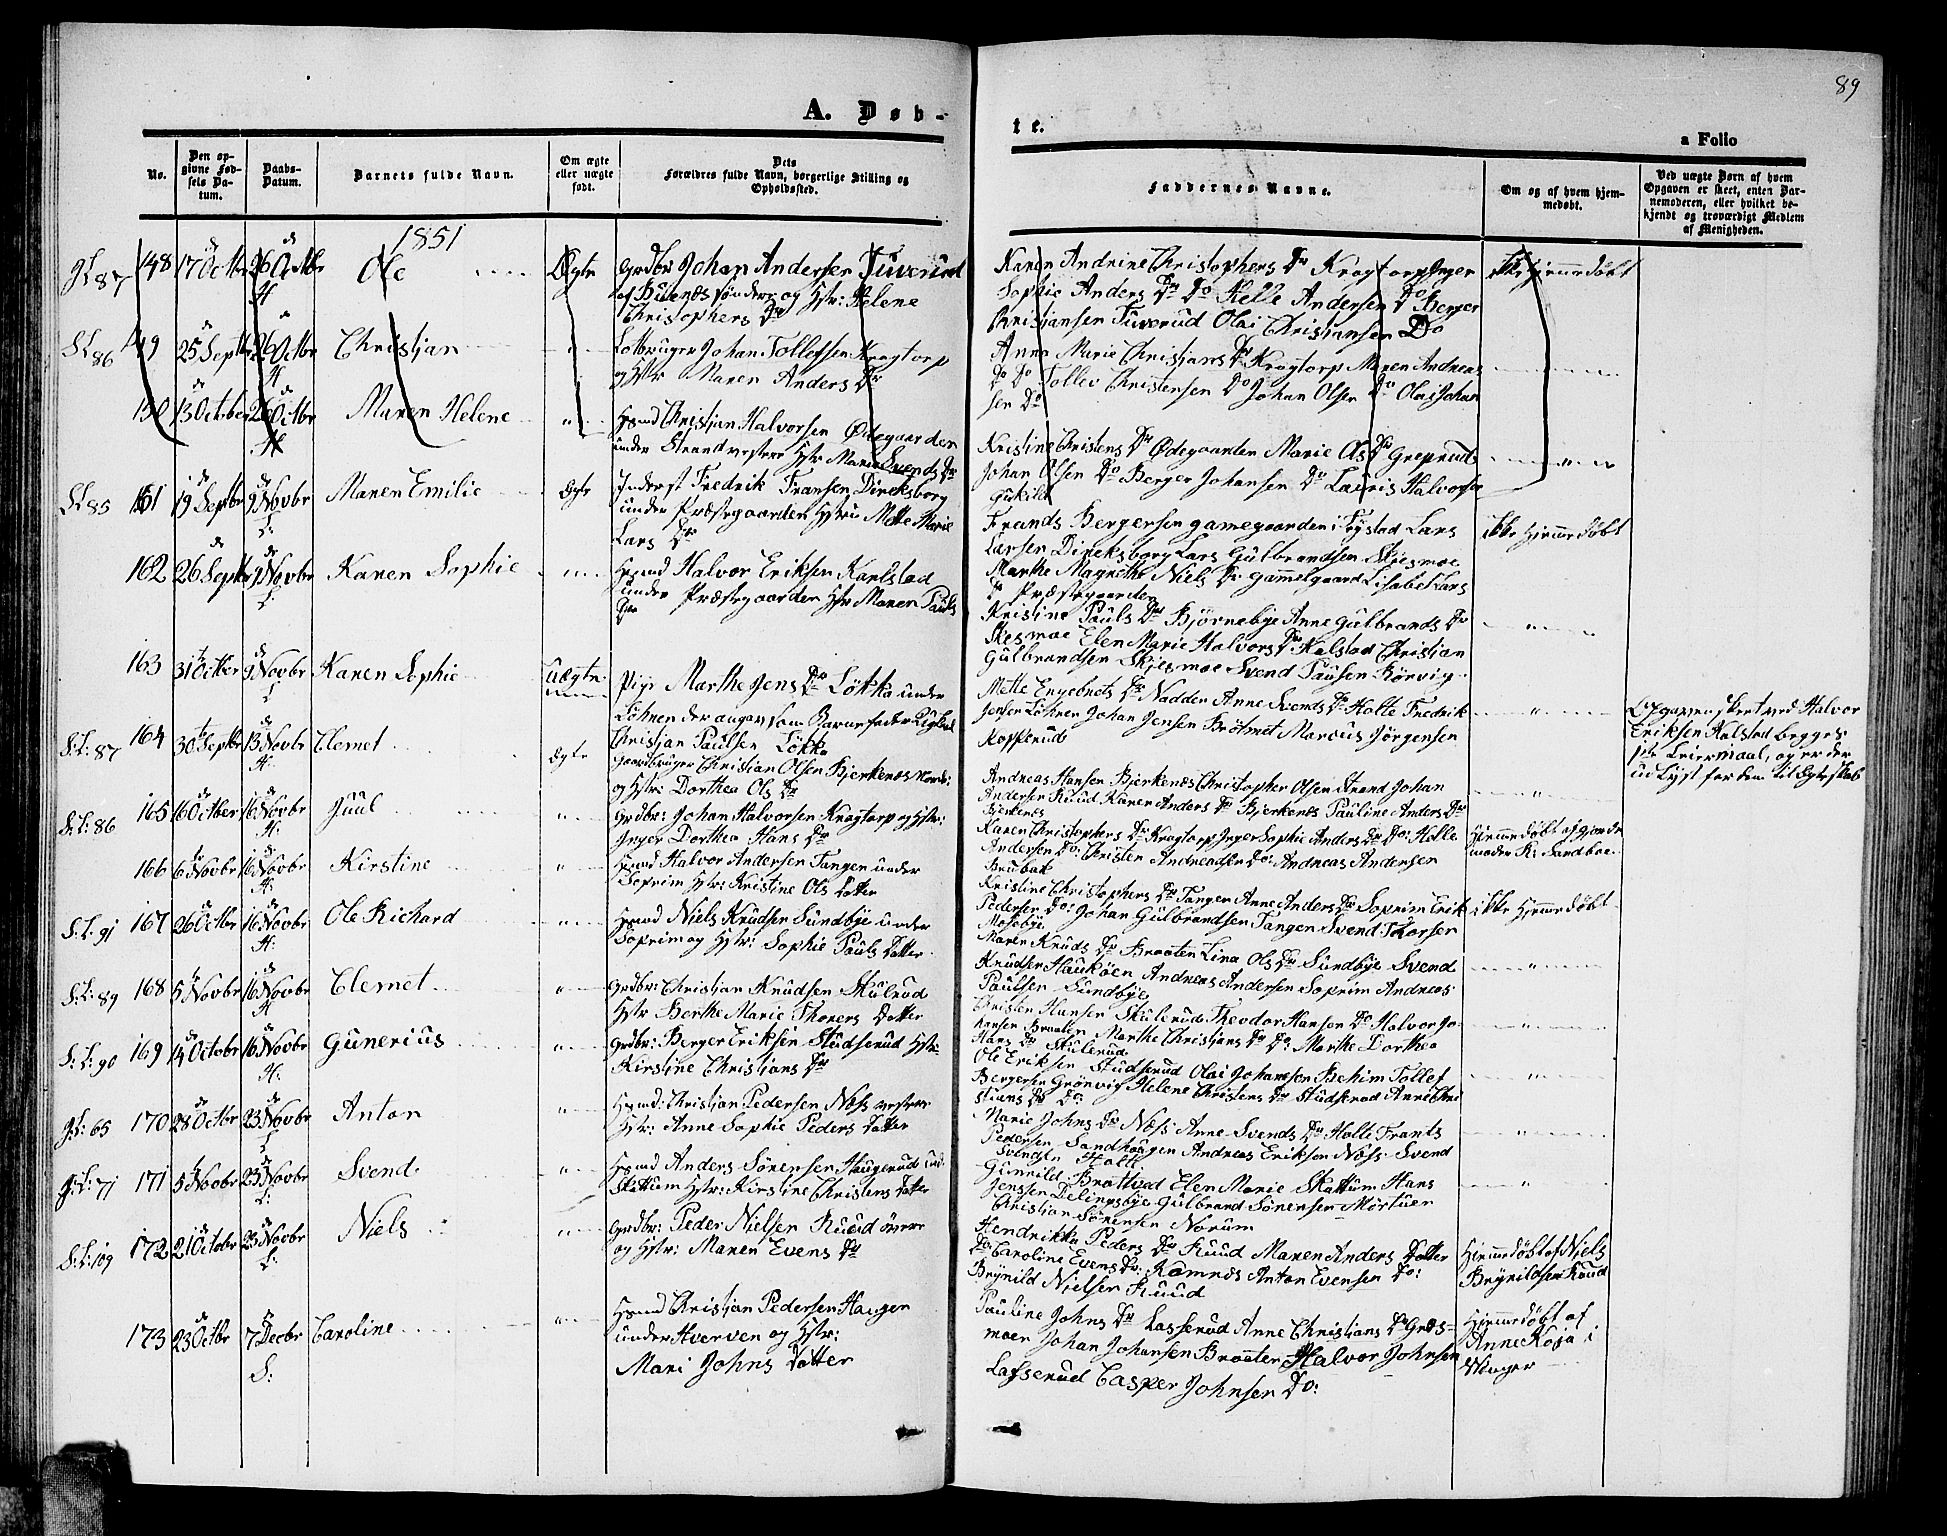 89
A. Døb-
te.
a Folio
No.
Den op-
givne Fød-
sels Da-
tum.
Daabs-
Datum.
Barnets fulde Navn.
Om ægte
eller uægte
født.
Dets
Forældres fulde Navn, borgerlige Stilling og
Opholdssted.
Faddernes Navne.
Om og af hvem hjem-
medøbt.
Ved uægte Børn af hvem
Opgaven er skeet, enten Bar-
nemoderen, eller hvilket be-
kjendt og troværdigt Medlem
af Menigheden.
1851
148 17 Octbr 26 Octbr Ole Ægte Grdbr Johan Andersen Tuverud
H
Buenæs søndre og Hstr: Helene
Christophers Dr
Karen Andrine Christophers Dr Krogtorp Inger
Sophie Anders Dr Do Helle Andersen Do Berger
Christiansen Tuverud Olai Christiansen Do
ikke hjemmedøbt
S:L 86 149 25 Septbr 26 Octbr Christian " Johan Tollefsen Krogtorp
H
og Hstr Maren Anders Dr
Anne Marie Christians Dr Krogtorp Maren Andreas
Do Do Tollev Christensen Do Johan Olsen Do Olai Johan
sen Do
150 13 October 26 Octbr Maren Helene " Hsmd Christian Halvorsen Ødegaarden
H
under Strand vestre Hstr Marie Svends Dr
Kristine Christens Dr Ødegaarden Marie Ols Dr Greprud
Johan Olsen Do Berger Johansen Do Lauris Halvorsen
S:L 85 161 19 Septbr 9 Novbr Maren Emilie Ægte Inderst Fredrik Fransen Direksborg
L:
under Præstegaarden Hstru Mette Marie
Lars Dr
Frands Bergersen gamegaarden i Frystad Lars
Larsen Direksborg Lars Gulbrandsen Skjesmoe
Marthe Magrethe Niels Dr Gamelgaard Lisabet Lars
Dr Præstegaarden
ikke hjemmedøbt
162 26 Septbr 9 Novbr Karen Sophie " Hsmd Halvor Eriksen Karlstad
L:
under Præstegaarden Hstr Maren Pauls
Dr
Kristine Pauls Dr Bjørnebye Anne Gulbrands Dr
Skesmoe Elen Marie Halvors Dr Kalstad Christian
Gulbrandsen Skjesmoe Svend Paulsen Rørvig
163 31 Octber 9 Novbr Karen Sophie Uægte Pige Marthe Jens Dr Løkka under
L
Løknen der angav som Barnefader
Christian Paulsen Løkka
Mette Engebrets Dr Nadden Anne Svends Dr Holte Fredrik
Jensen Løknen Johan Jensen Brøtmet Marcus Jørgensen
Kopperud
Opgaven skeet ved Halvor
Eriksen Kalstad begges
1ste Leiermaal, og er der
udlyst for dem til Egteskab
S:L: 87 164 30 Septbr 13 Novbr Clemet Ægte Gaardbruger Christian Olsen Bjerkenæs
H.
og Hstr: Dorthea Ols Dr
Andreas Hansen Bjerkenæs Christopher Olsen Strand Johan
Andersen Ruud Karen Anders Dr Bjerkenæs Pauline Anders Dr
Bjerkenes
S:L: 86 165 16 Octber 16 Novbr Juul " Grdbr: Johan Halvorsen Krogtorp og Hstr:
H:
Inger Dorthea Hans Dr
Karen Christophers Dr Krogtorp Inger Sophie Anders Dr Do: Helle
Andersen Do: Christen Andreasen Do: Andreas Andersen
Brubak
Hjemmedøbt af Gjorde
moder K: Sandboe
166 6 Novbr 16 Novbr Kirstine " Hsmd Halvor Andersen Tangen under
H:
Soprim Hstr: Kristine Ols Datter
Kristine Christophers Dr Tangen Anne Anders Dr Soprim Erik
Pedersen Do: Johan Gulbrandsen Tangen Svend Thorsen
Mosebye
ikke Hjemmedøbt
S:L: 91 167 26 Octbr 16 Novbr Ole Richard " Hsmd Niels Knudsen Sundbye under
H:
Soprim og Hstr: Sophie Pauls Datter
Maren Knuds Dr Braaten Lina Ols Dr Sundbye Svend
Knudsen Haukøen Andreas Andersen Soprim Andreas
Paulsen Sundbye
S:L: 89 168 5 Novbr 16 Novbr Clemet " Grdbr: Christian Knudsen Skulrud
H
Hstr Berthe Marie Thorers Datter
Christen Hansen Skulerud Theodor Hansen Do Halvor Jo-
hansen Braaten Marthe Christians Dr Do: Marthe Dorthea
Hans Dr Skulerud
S:L: 90 169 14 Octobr 16 Novbr Gunerius " Grdbr: Berger Eriksen Studserud Hstr:
H:
Kirstine Christians Dr
Ole Eriksen Studserud Olai Johansen Bekim Tollef
Bergersen Grønvig Helene Christens Dr Studsrud Anne Chri
stians Dr Do:
G:L: 65 170 28 Octbr 23 Novbr Anton " Hsmd: Christian Pedersen Næss vestre
L
Hstr: Anne Sophie Peders Datter
Marie Johns Dr Næss Anne Svends Dr Holte Frants
Pedersen Sandhaugen Andreas Eriksen Næss Svend
Svendsen Holt
G:L: 71 171 5 Novbr 23 Novbr Svend " Hsmd Anders Sørensen Haugerud und.
L:
Skattum Hstr: Kirstine Christens Datter
Gunnild Brattved Elen Marie Skattum Hans
Jensen Delingsbye Gulbrand Sørensen Mørtuer
Christian Sørensen Norum
S:L: 109 172 21 Octobr 23 Novbr Niels " Grdbr: Peder Nielsen Ruud øvre
L:
og Hstr: Maren Evens Dr
Hendrikka Peders Dr Ruud Maren Anders Datter
Do Caroline Evens Do: Kamnæs Anton Evensen Do:
Brynild Nielsen Ruud
Hjemmedøbt af Niels
Brynildsen Ruud
173 23 Octbr 7 Decbr Caroline " Hsmd Christian Pedersen Haugen
S:
under Hverven og Hstr:
Mari Johns Datter
Pauline Johns Dr Lasserud Anne Christians Dr Græs-
moen Johan Johansen Braaten Halvor Johnsen
Lasserud Casper Johnsen Do:
Hjemmedøbt af
Anne Koja i